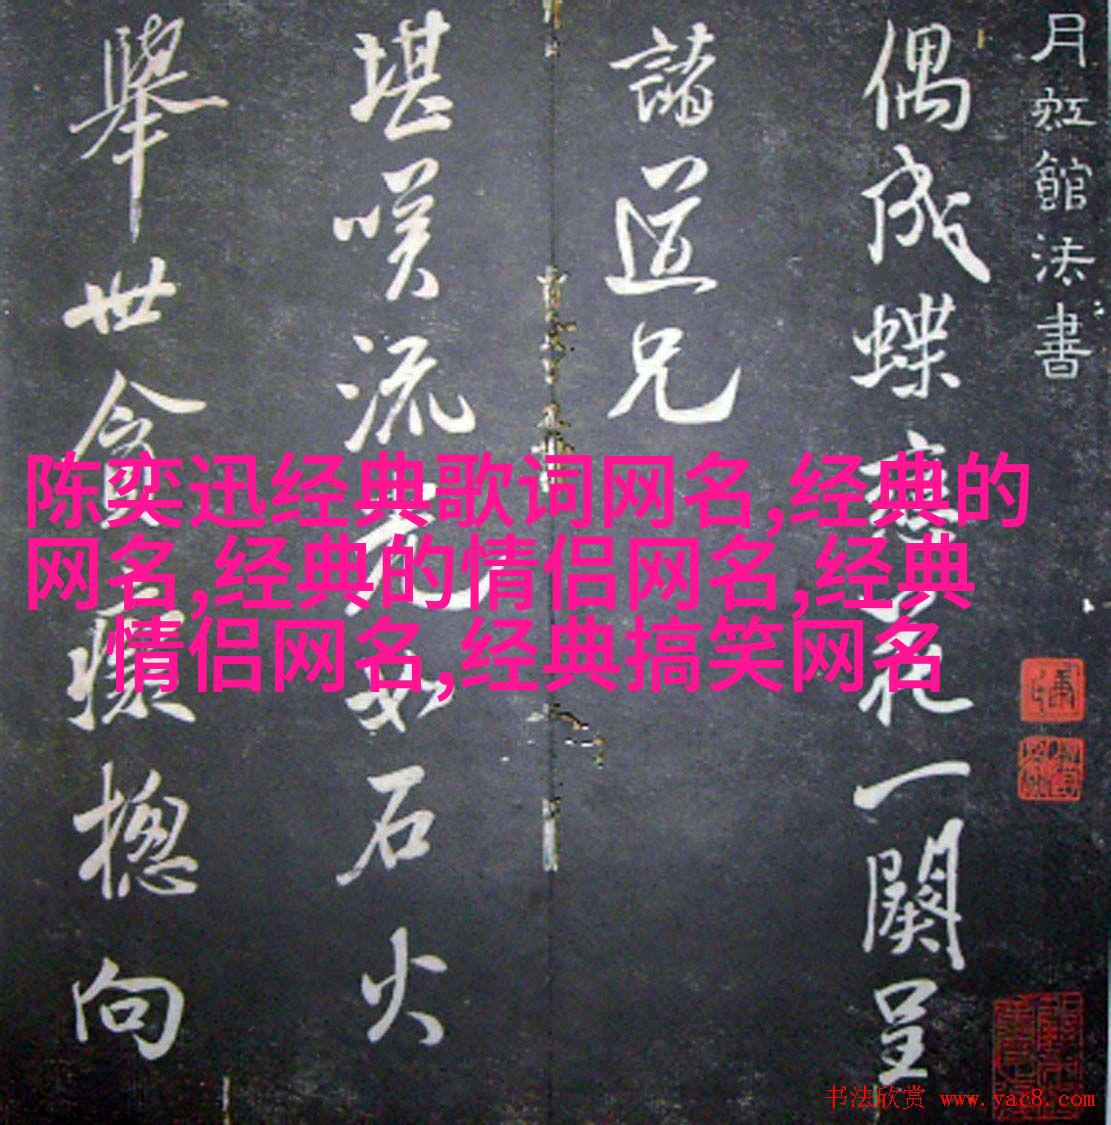 月虹館法書
偶成蝶戀花一闋呈
諸道兄
堪咲流光如石火
舉世貪摠向
陈奕迅经典歌词网名,经典的
网名,经典的情侣网名,经典
情侣网名,经典搞笑网名
书法欣赏 www.yac8.com